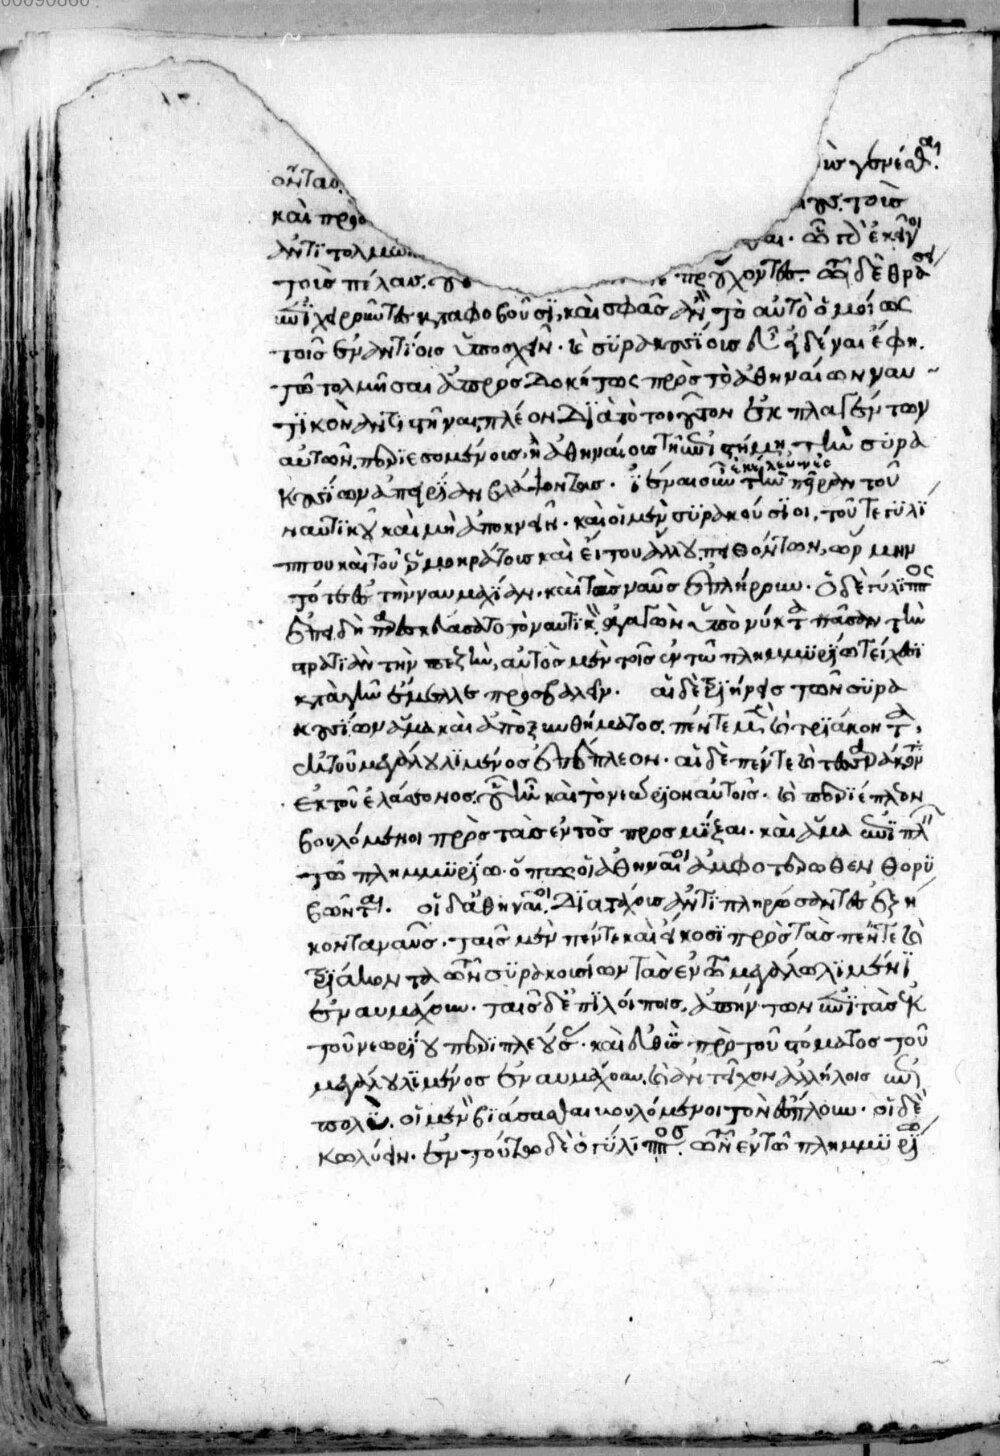 όντας ὼς γενέσθαι.
καὶ πρὸ τοῖς
ἀντιτολμῶν αι. ῶ τὸ ἐκεῖνοι
τοῖς πέλας. οὐ προύχοντες. τῶ δὲ θράσει
ἐπιχειροῦντες καταφοβοῦσϊ, καὶ σφᾶς ἂν τὸ αὐτὸ ὁμοίως
τοῖς ἐναντίοις ὑποσχεῖν. καὶ σϋρακουσΐοις εὖ εἰδέναι ἔφη.
τῶ τολμῆσαι ἀπροσδοκήτως πρὸς τὸ ἀθηναίων ναυ
τϊκὸν ἀντιστῆναι, πλέον διὰ τὸ τοιοῦτον ἐκπλαγέντων
αὐτῶν, περιεσομένοις, ἢ ἀθηναίοις τῆ ἐπιστήμη τὴν σϋρα
κουσΐων ἀπειρίαν βλάψοντας. ἰέναι οὖν ἐκέλευεν ἐς τὴν πεῖραν τοῦ
ναυτικοῦ καὶ μὴ ἀποκνεῖν. καὶ οἱ μὲν σϋρακούσϊοι, τοῦ τε γϋλΐ
ππου καὶ τοῦ ἑρμοκράτους καὶ εἴ του ἄλλου πειθόντων, ὥρμην
τό τε ἐς τὴν ναυμαχίαν. καὶ τὰς ναῦς ἐπλήρουν. ὁ δὲ γύλϊππος
ἐπειδὴ παρεσκευάσατο τὸ ναυτικὸν ἀγαγὼν ὑπὸ νύκτα πᾶσαν τὴν
στρατιὰν τὴν πεζὴν, αὐτὸς μὲν τοῖς ἐν τῶ πλημμϋρίω τείχεσϊ
κατὰ γῆν ἔμελλε προσβαλεῖν. αἱ δὲ τριήρεις τῶν σϋρα
κουσΐων ἅμα καὶ ἀπὸ ξυνθήματος. πέντε μὲν καὶ τριάκοντα
ἐκ τοῦ μεγάλου λϊμένος ἐπέπλεον. αἱ δὲ πέντε καὶ τεσσαράκοντα
ἐκ τοῦ ἐλάσσονος. οὗ ἦν καὶ τὸ νεώριον αὐτοῖς. καὶ περιέπλεον
βουλόμενοι πρὸς τὰς ἐντὸς προσμΐξαι. καὶ ἅμα ἐπιπλεῖν
τῶ πλημμϋρίω. ὅπως οἱ ἀθηναῖοι ἀμφοτέρωθεν θορϋ
βῶνται. οἱ δ' ἀθηναῖοι. διὰ τάχους ἀντιπληρώσαντες ἑξή
κοντα ναῦς. ταῖς μὲν πέντε καὶ εἴκοσϊ πρὸς τὰς πέντε καὶ
τριάκοντα τῶν σϋρακοσίων τὰς ἐν τῶ μεγάλω λϊμένϊ
ἐναυμάχουν. ταῖς δ' ἐπϊλοίποις, ἀπήντων ἐπὶ τὰς ἐκ
τοῦ νεωρίου περιπλεούσας. καὶ εὐθὺς πρὸ τοῦ στόματος τοῦ
μεγάλου λϊμένος ἐναυμάχουν. καὶ ἀντεῖχον ἀλλήλοις ἐπὶ
πολὺ. οἱ μὲν βιάσασθαι βουλόμενοι τὸν ἔσπλουν. οἱ δὲ
κωλύειν. ἐν τούτω δὲ ὁ γϋλιππος. τῶν ἐν τῶ πλημμϋρίω